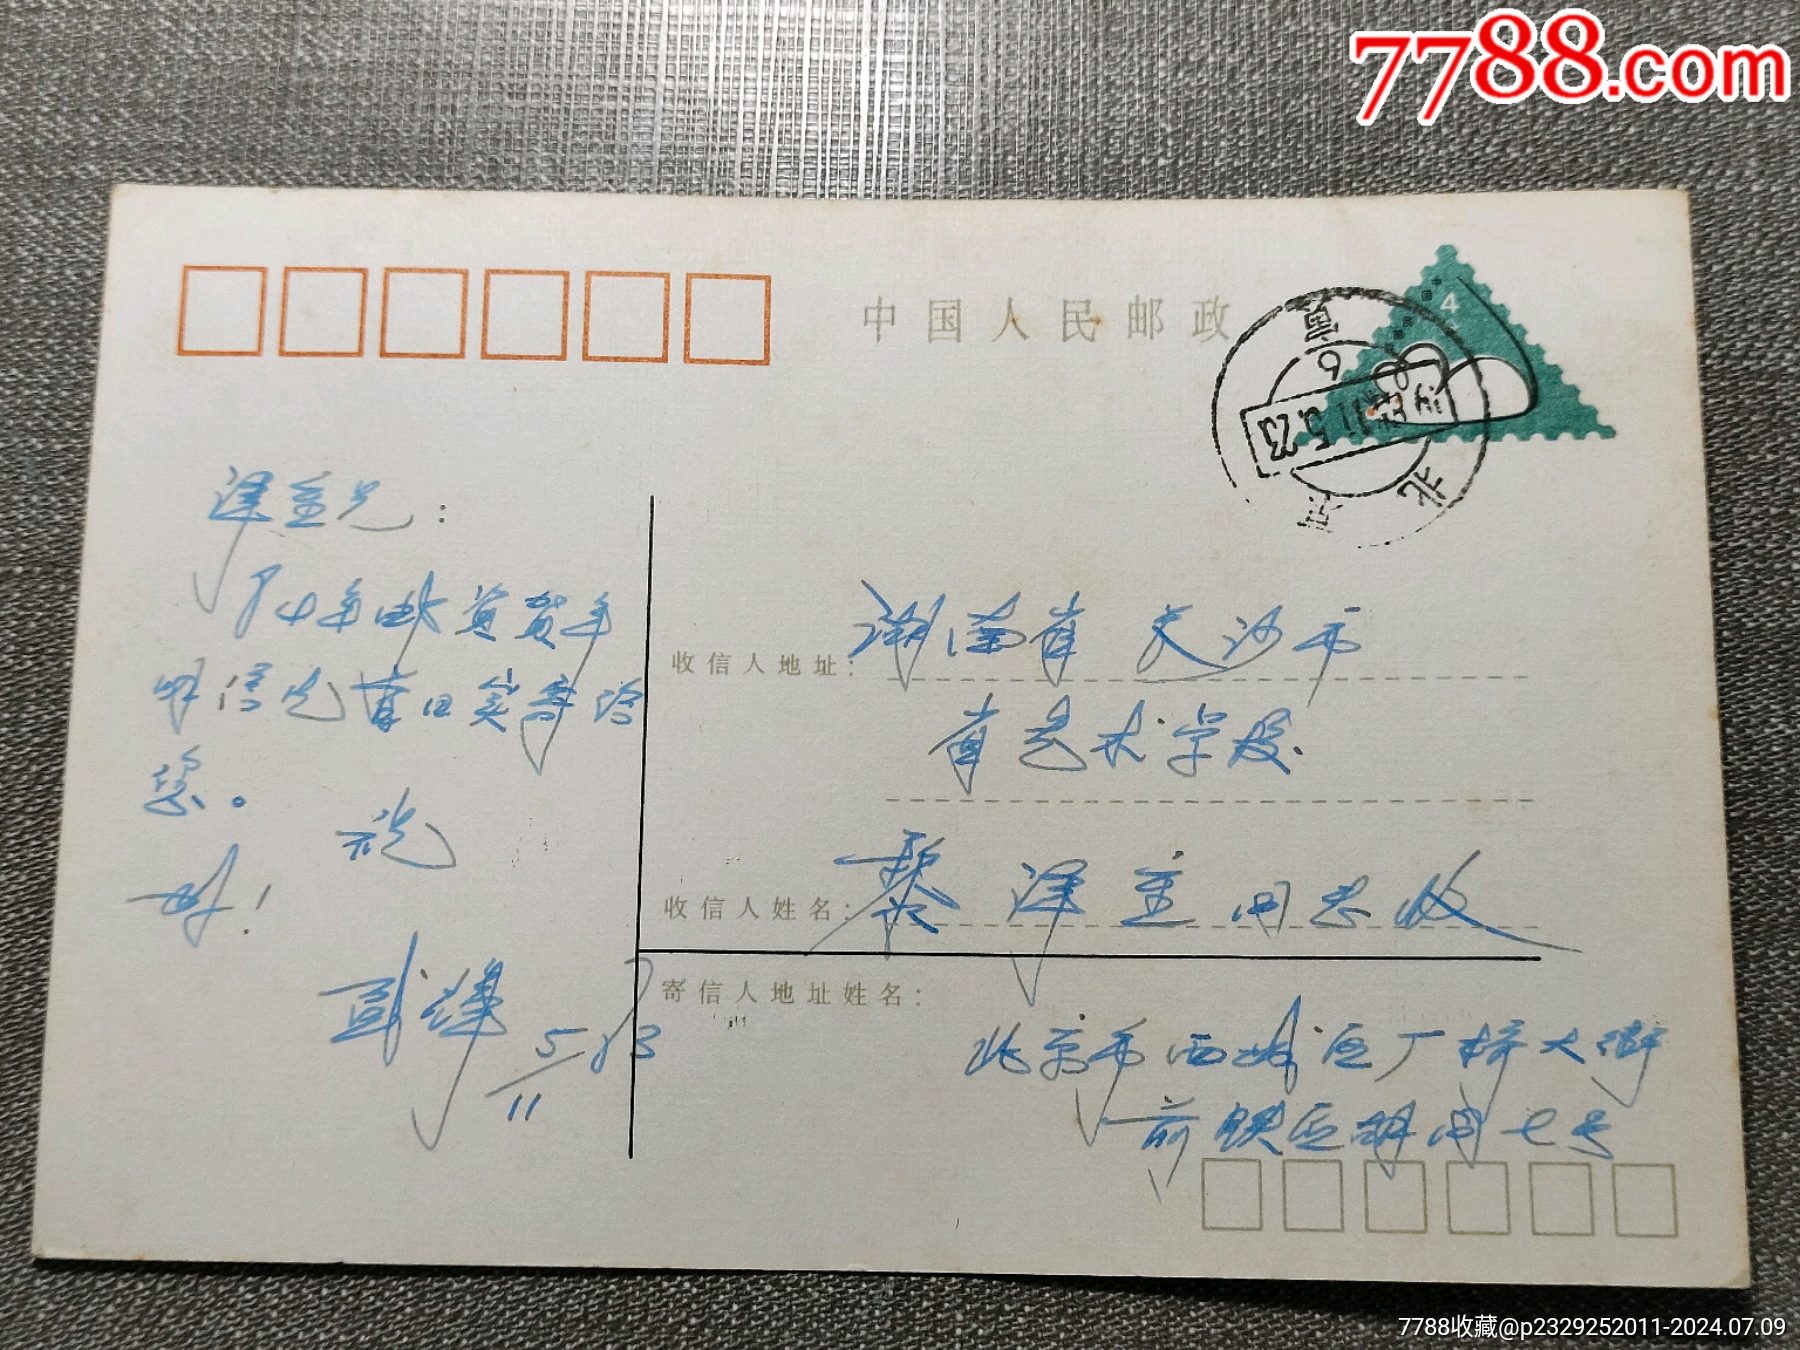 7788.com
中国人民邮政
4
北京
泽重兄:
84年邮资贺年
明信片首日实寄给
您。
祝
好!
5/11 83
收信人地址:湖南省长沙市
省艺术学校
收信人姓名:黎泽重同志收
寄信人地址姓名:
北京市西城区广桥大街
前铁匠胡同七号
7788收藏@p2329252011-2024.07.09